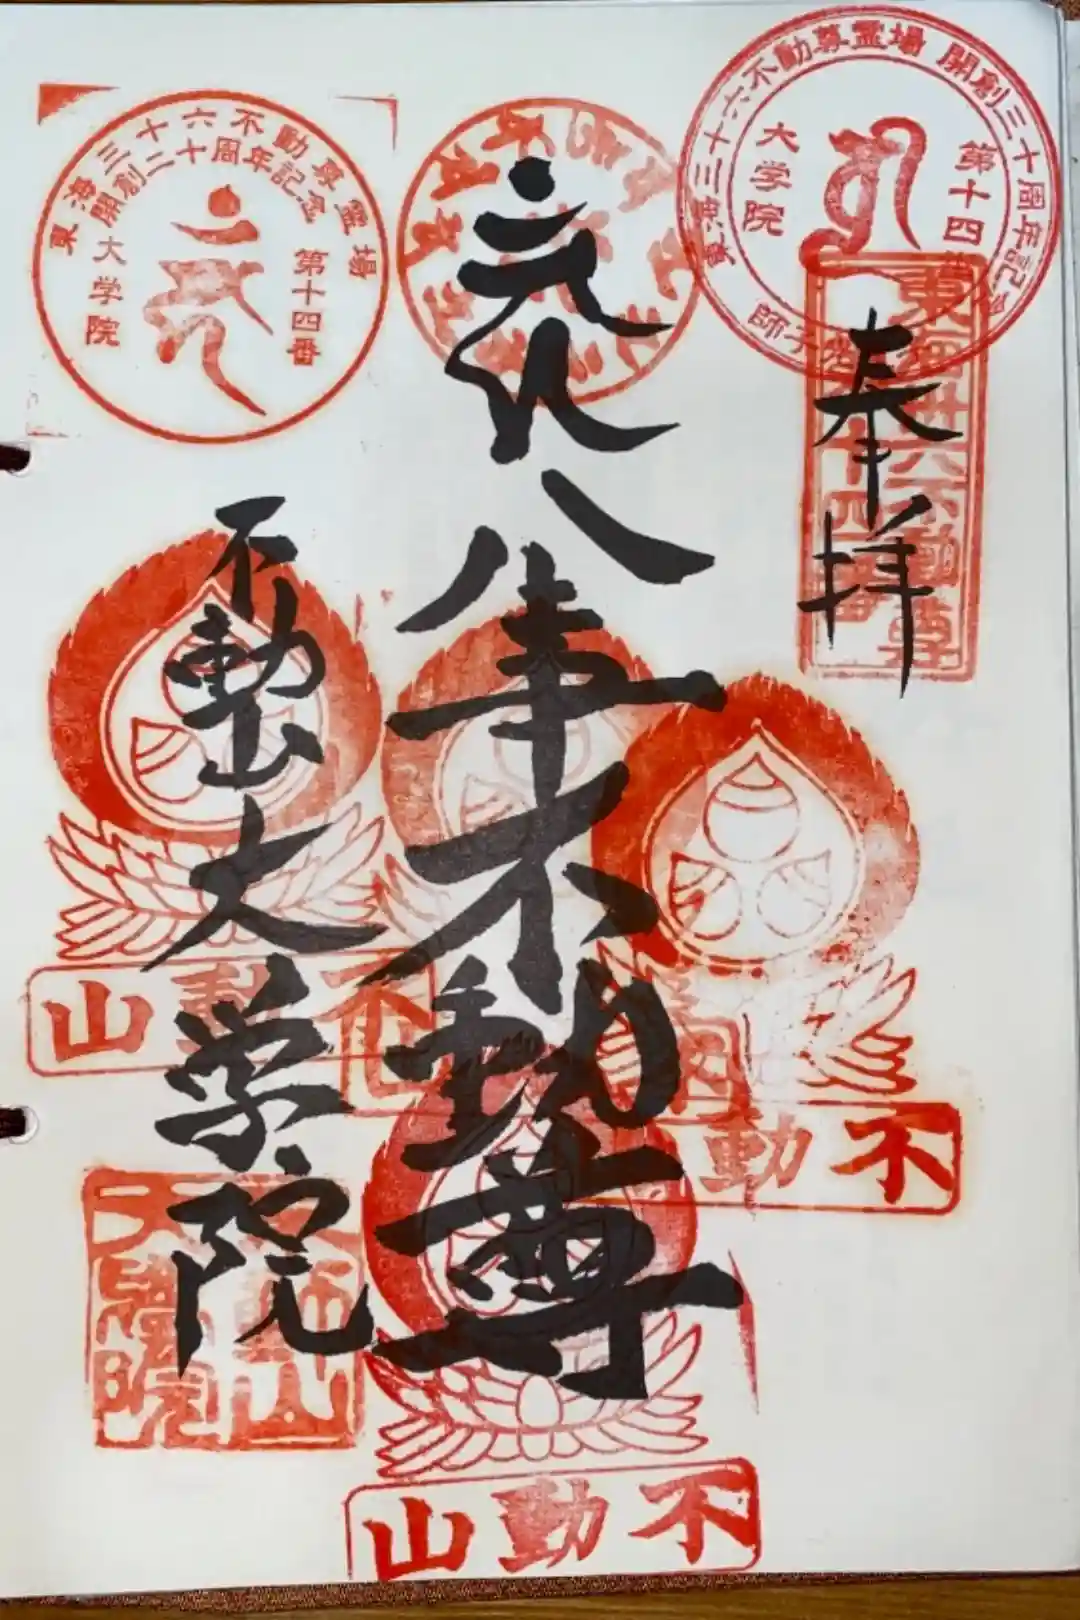 奉拝
八事不動尊
不動山大学院
東海三十六不動尊霊場
開創二十周年記念
第十四番
大学院
東海三十六不動尊霊場 開創三十周年記念
第十四番
大学院
東海三十六不動尊
第十四番
不動山
不動山
不動山